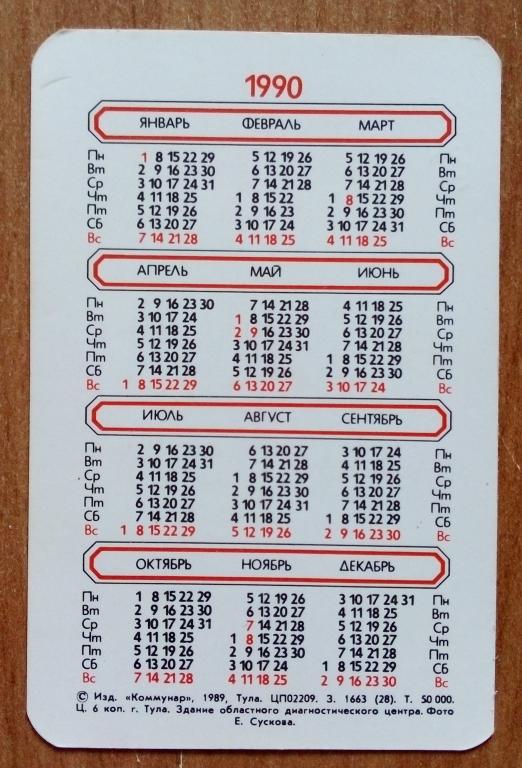 1990
ЯНВАРЬ ФЕВРАЛЬ МАРТ
Пн 1 8 15 22 29 5 12 19 26 5 12 19 26 Пн
Вт 2 9 16 23 30 6 13 20 27 6 13 20 27 Вт
Ср 3 10 17 24 31 7 14 21 28 7 14 21 28 Ср
Чт 4 11 18 25 1 8 15 22 1 8 15 22 29 Чт
Пт 5 12 19 26 2 9 16 23 2 9 16 23 30 Пт
Сб 6 13 20 27 3 10 17 24 3 10 17 24 31 Сб
Вс 7 14 21 28 4 11 18 25 4 11 18 25 Вс
АПРЕЛЬ МАЙ ИЮНЬ
Пн 2 9 16 23 30 7 14 21 28 4 11 18 25 Пн
Вт 3 10 17 24 1 8 15 22 29 5 12 19 26 Вт
Ср 4 11 18 25 2 9 16 23 30 6 13 20 27 Ср
Чт 5 12 19 26 3 10 17 24 31 7 14 21 28 Чт
Пт 6 13 20 27 4 11 18 25 1 8 15 22 29 Пт
Сб 7 14 21 28 5 12 19 26 2 9 16 23 30 Сб
Вс 1 8 15 22 29 6 13 20 27 3 10 17 24 Вс
ИЮЛЬ АВГУСТ СЕНТЯБРЬ
Пн 2 9 16 23 30 6 13 20 27 3 10 17 24 Пн
Вт 3 10 17 24 31 7 14 21 28 4 11 18 25 Вт
Ср 4 11 18 25 1 8 15 22 29 5 12 19 26 Ср
Чт 5 12 19 26 2 9 16 23 30 6 13 20 27 Чт
Пт 6 13 20 27 3 10 17 24 31 7 14 21 28 Пт
Сб 7 14 21 28 4 11 18 25 1 8 15 22 29 Сб
Вс 1 8 15 22 29 5 12 19 26 2 9 16 23 30 Вс
ОКТЯБРЬ НОЯБРЬ ДЕКАБРЬ
Пн 1 8 15 22 29 5 12 19 26 3 10 17 24 31 Пн
Вт 2 9 16 23 30 6 13 20 27 4 11 18 25 Вт
Ср 3 10 17 24 31 7 14 21 28 5 12 19 26 Ср
Чт 4 11 18 25 1 8 15 22 29 6 13 20 27 Чт
Пт 5 12 19 26 2 9 16 23 30 7 14 21 28 Пт
Сб 6 13 20 27 3 10 17 24 1 8 15 22 29 Сб
Вс 7 14 21 28 4 11 18 25 2 9 16 23 30 Вс
© Изд. «Коммунар», 1989, Тула. ЦП02209. З. 1663 (28). Т. 50 000.
Ц. 6 коп. г. Тула. Здание областного диагностического центра. Фото
Е. Сускова.